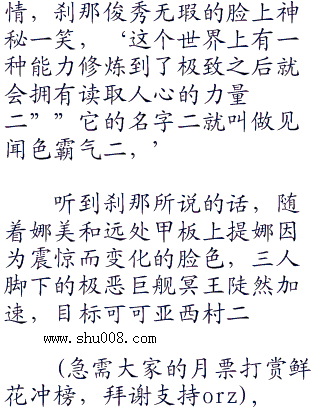 情，刹那俊秀无瑕的脸上神
秘一笑，‘这个世界上有一
种能力修炼到了极致之后就
会拥有读取人心的力量
二””它的名字二就叫做见
闻色霸气二，’
听到刹那所说的话，随
着娜美和远处甲板上提娜因
为震惊而变化的脸色，三人
脚下的极恶巨舰冥王陡然加
速，目标可可亚西村二
www.shu008.com
(急需大家的月票打赏鲜
花冲榜，拜谢支持orz)，